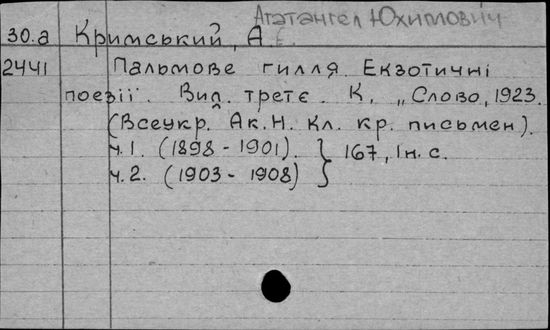 Агатангел Юхимович
30.а Кримський, А.Е.
2441 Пальмове гилля. Екзотичні
поезії. Вип. третє. К., „Слово, 1923.
(Всеукр. Ак. Н. Кл. кр. письмен).
ч.1. (1898 - 1901). } 167, Iн. с.
ч.2. (1903 - 1908)